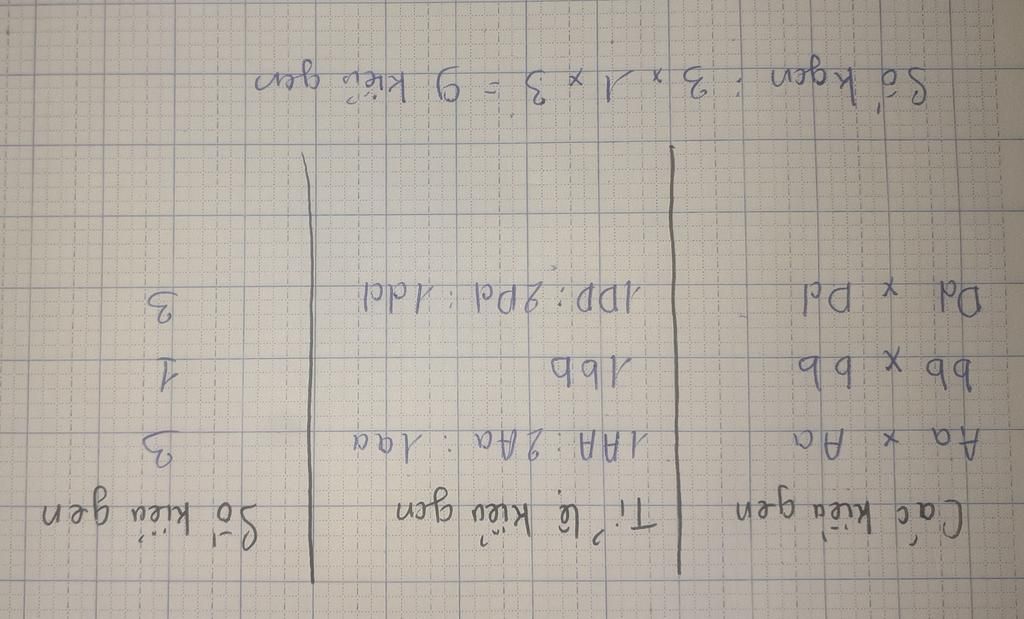 Các kiểu gen Tỉ lệ kiểu gen Số kiểu gen
Aa x Aa 1AA : 2Aa : 1aa 3
bb x bb 1bb 1
Dd x Dd 1DD : 2Dd : 1dd 3
Số kgen : 3 x 1 x 3 = 9 kiểu gen